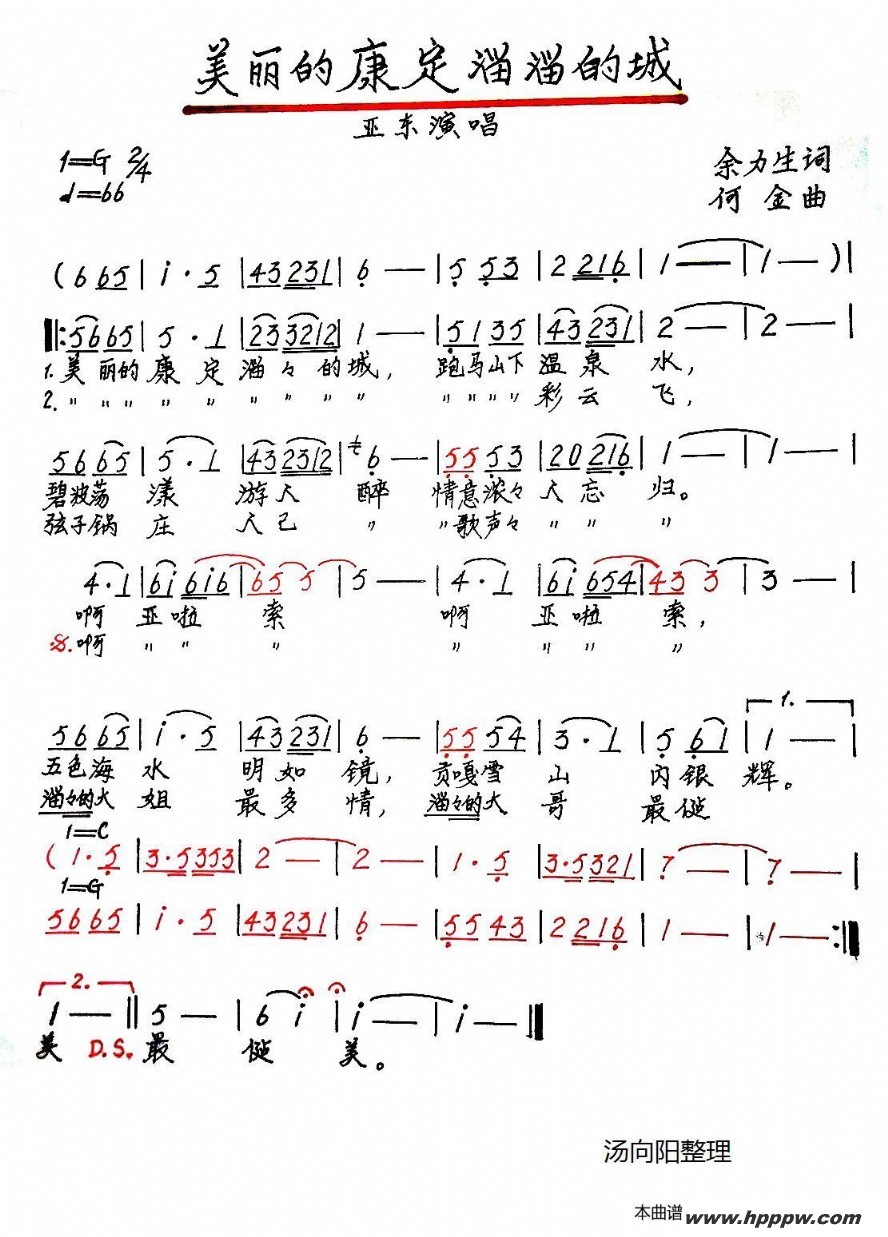 美丽的康定溜溜的城
亚东演唱
1=G 2/4
余力生词
♩=66
何金曲
(6 6 5 | i · 5 | 4 3 2 3 1 | 6 — | 5 5 3 | 2 2 1 6 | 1 — | 1 — ) |
‖: 5 6 6 5 | 5 · 1 | 2 3 3 2 1 2 | 1 — | 5 1 3 5 | 4 3 2 3 1 | 2 — | 2 — |
1. 美丽的康定溜々的城, 跑马山下温泉水,
2. 〃 〃 〃 〃 〃 〃 〃 〃 〃 〃 〃 〃 〃 彩云飞,
5 6 6 5 | 5 · 1 | 4 3 2 3 1 2 | 6 — | 5 5 5 3 | 2 0 2 1 6 | 1 — | 1 — |
碧波荡漾游人醉 情意浓々人忘归。
弦子锅庄人已〃 〃歌声々〃 〃 〃
4 · 1 | 6 i 6 i 6 | 6 5 5 | 5 — | 4 · 1 | 6 i 6 5 4 | 4 3 3 | 3 — |
啊亚啦索 啊亚啦索,
𝄋. 啊 〃 〃 〃 〃 〃 〃 〃
1.
5 6 6 5 | i · 5 | 4 3 2 3 1 | 6 — | 5 5 5 4 | 3 · 1 | 5 6 1 | 1 — |
五色海水明如镜, 贡嘎雪山闪银辉。
溜々的大姐最多情, 溜々的大哥最

1=C
(1 · 5 | 3 · 5 3 5 3 | 2 — | 2 — | 1 · 5 | 3 · 5 3 2 1 | 7 — | 7 — |
1=G
5 6 6 5 | i · 5 | 4 3 2 3 1 | 6 — | 5 5 4 3 | 2 2 1 6 | 1 — | 1 — :‖
2.
1 — ‖ 5 — | 6 i | i — | i — ‖
美 D.S. 最 美。
汤向阳整理
本曲谱 www.hpppw.com